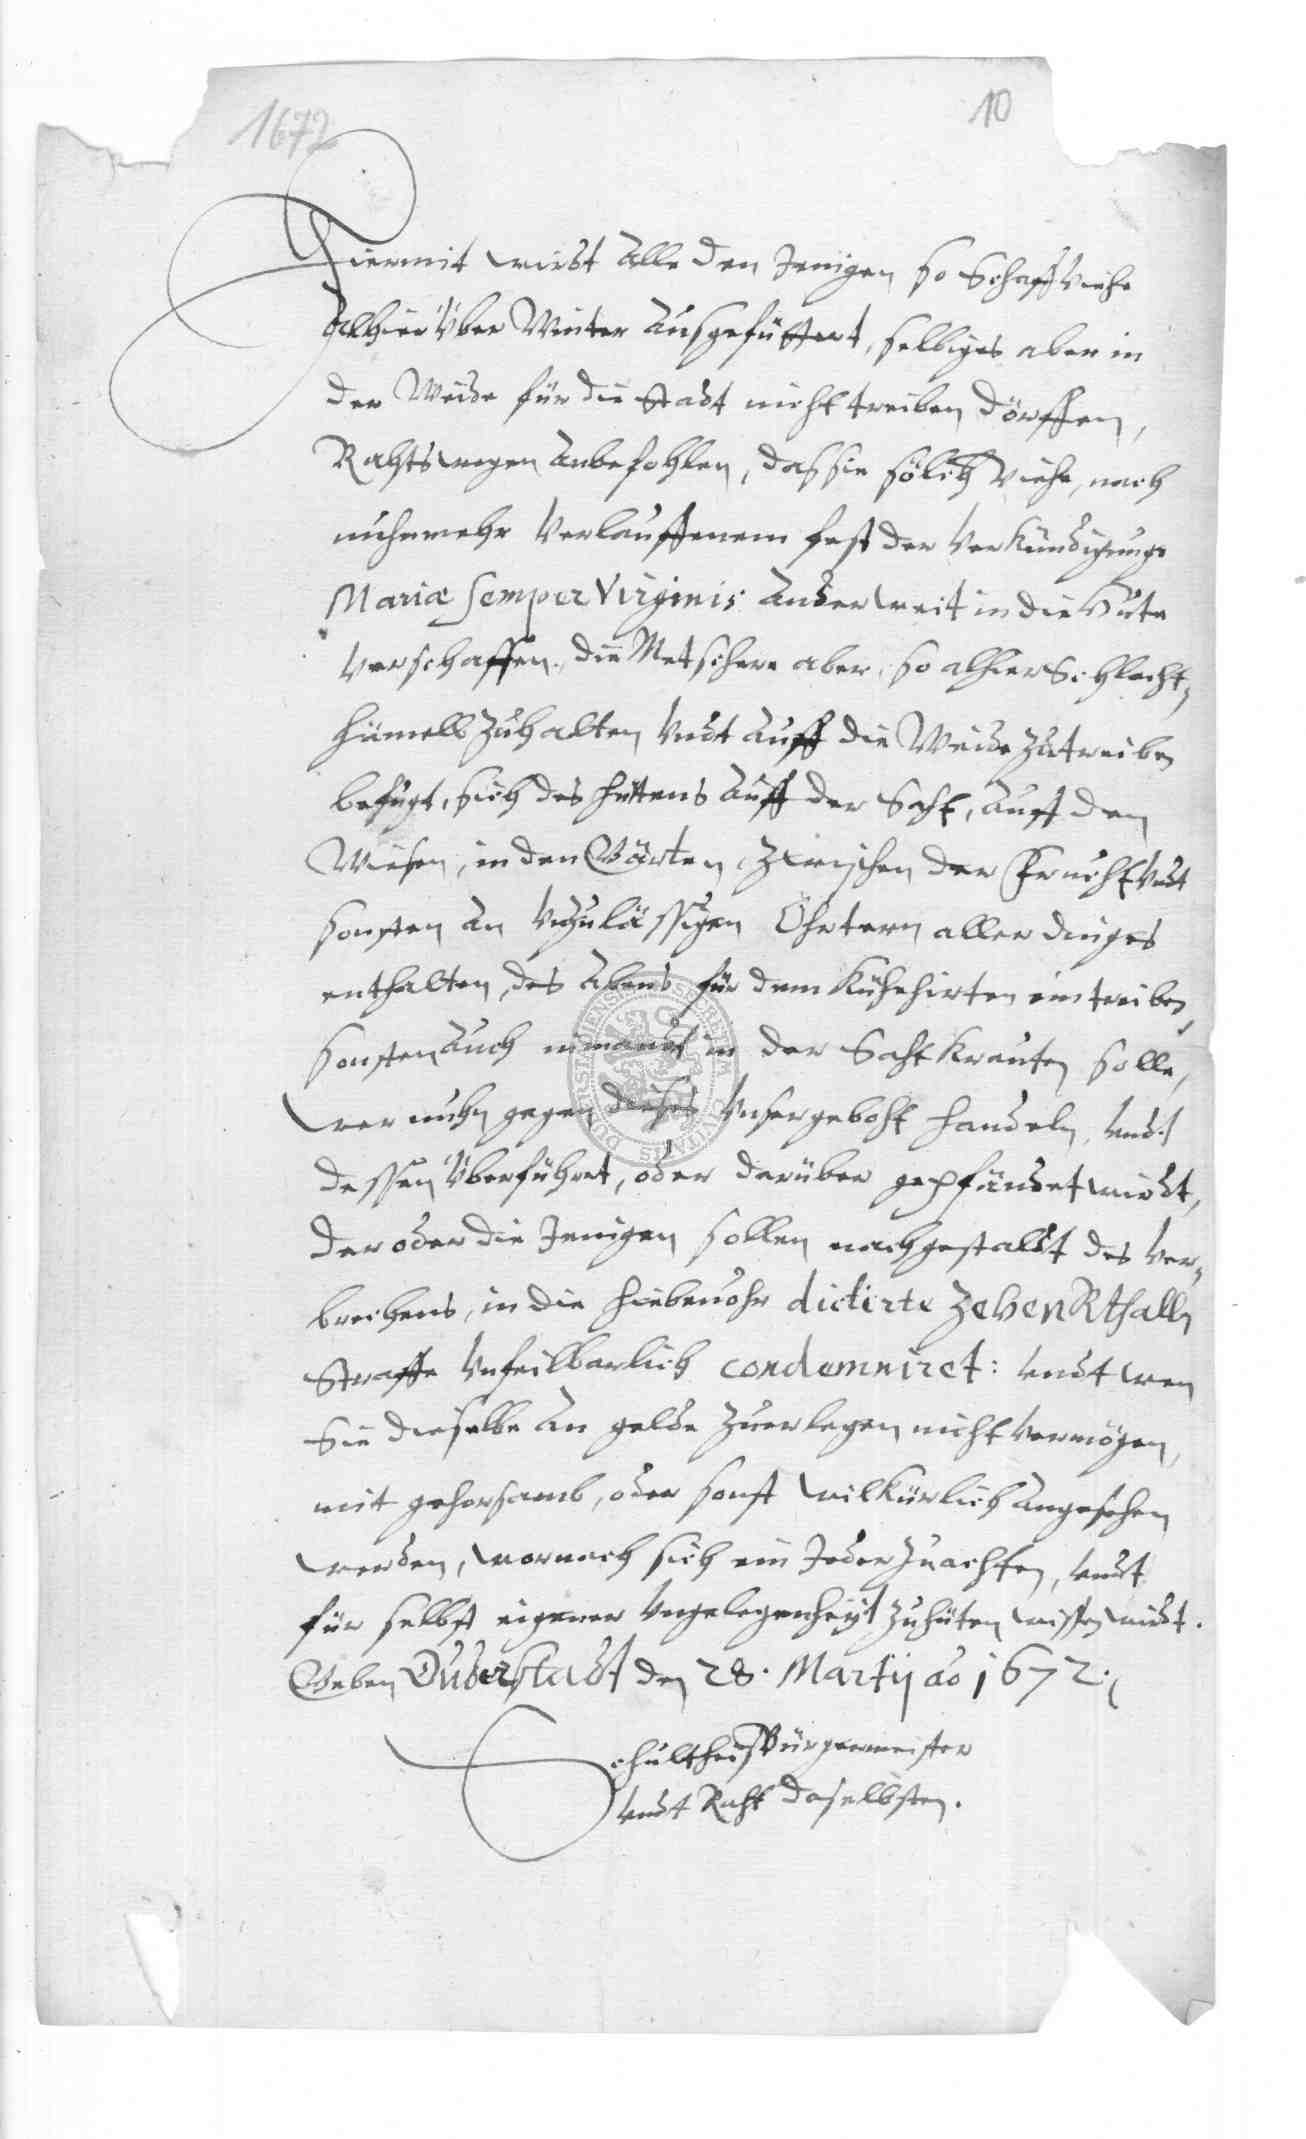 1672
10
Hiermit wirdt Alle den Jenigen so Schaff Viehe
alhier Vber Winter Ausgefüttert, selbiges aber in
der Weide für die Stadt nicht treiben dörffen,
Rahtswegen Anbefohlen, das sie sölch Viehe, nach
nuhnmehr Verlauffenem fest der Verkündigungs
Mariæ semper Virginis Anderweit in die Hüte
Verschaffen, die Metschere aber, so alhier Schlacht,
hämell zuhalten Vndt Auff die Weide zutreiben
befugt, sich des hütens Auff der Saht, Auff den
Wiesen, in den Gärten, zwischen der Frucht Vndt
sonsten An Vnzulässigen Öhrtern aller dinges
enthalten, des Abens für dem Kühehirten eintreiben,
sonsten Auch niemandt in der Saht Krauten solle,
wer nuhn gegen dieses Vnser geboht handeln, Vndt
dessen Vberführet, oder darüber gepfändet wirdt,
der oder die Jenigen sollen nach gestaldt des Ver,
brechens, in die hiebeuohr dictirte zehen Rthall
Straffe Vnfeilbarlich condemniret: Vndt wen
Sie dieselbe An gelde zuerlegen nicht Vermögen,
mit gehorsamb, oder sonst wilkürlich Angesehen
werden, wornach sich ein Jeder zuachten, Vndt
für selbst eigener Vngelegenheyt zuhüten wissen wirdt.
Geben Duderstadt den 28. Martij ao 1672.
Schultheis Bürgermeister
Vndt Raht daselbsten.